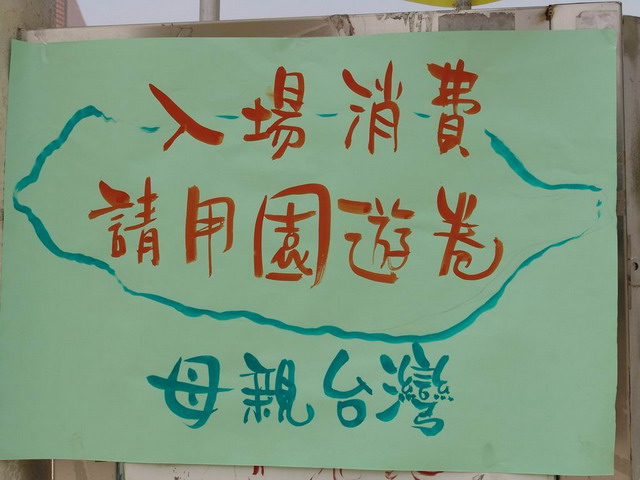 入場消費
請用園遊卷
母親台灣